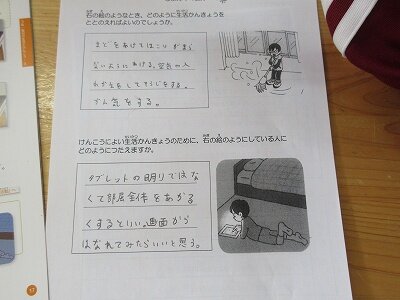 右の絵のようなとき、どのように生活かんきょうを
ととのえればよいのでしょうか。
まどをあけてほこりがまら
ないようにあける。空気の入
れかえをしてそうじをする。
かん気をする。
けんこうによい生活かんきょうのために、右の絵のようにしている人に
どのようにつたえますか。
タブレットの明りではな
くて部屋全体をあかる
くするといい。画面から
はなれてみたらいいと思う。
17